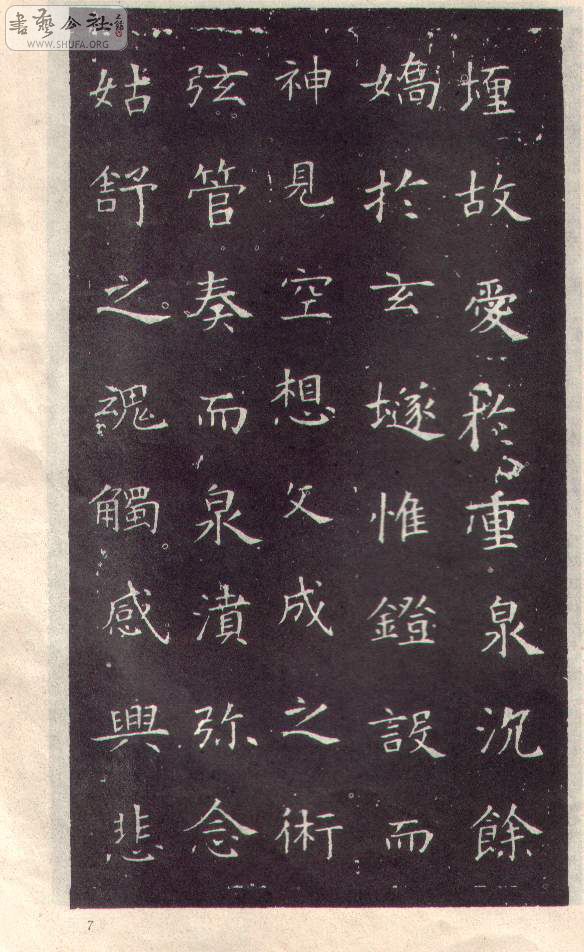 書藝公社
WWW.SHUFA.ORG
堙故愛於重泉沉餘
嬌於玄隧惟鐙設而
神見空想文成之術
弦管奏而泉濆弥念
姑舒之魂觸感興悲
7